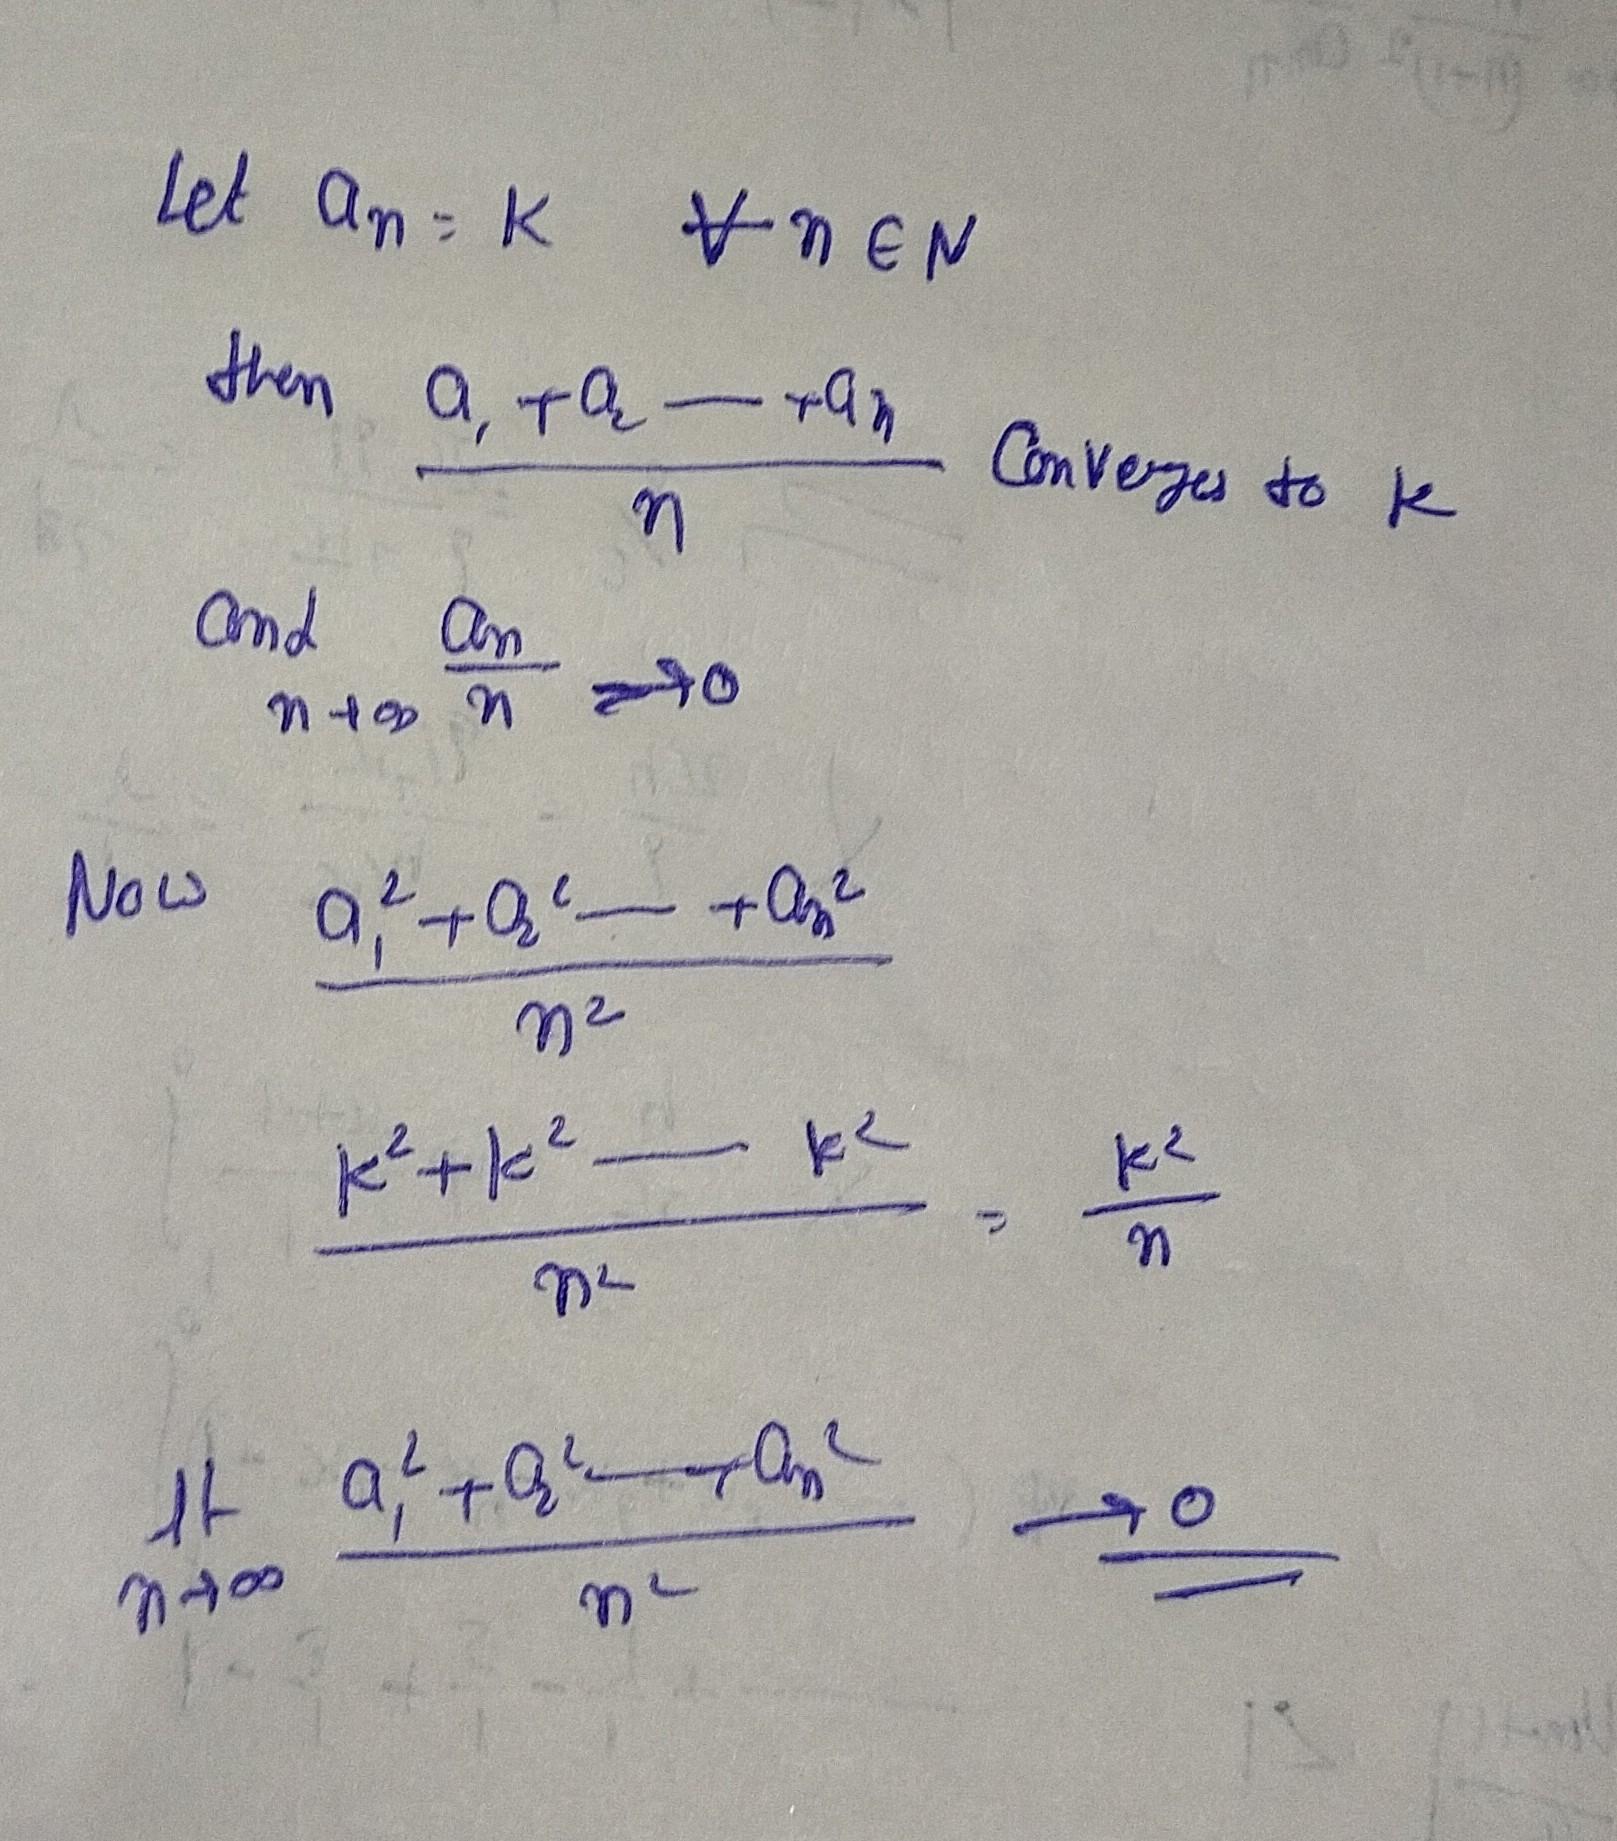 Let an = K ∀ n ∈ N
then a1 + a2 — + an
n
Converges to k
and an
n→∞ n → 0
Now a1² + a2² — + an²
n²
k² + k² — k²
n²
= k²
n
lt a1² + a2² — + an²
n→∞ n² → 0